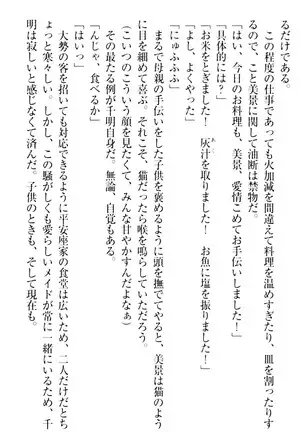 るだけである。
この程度の仕事であっても火加減を間違えて料理を温めすぎたり、皿を割ったりす
るので、こと美景に関しては油断は禁物だ。
「はい、今日のお料理も、美景、愛情こめてお手伝いしました！」
「具体的には？」
「お米をとぎました！　灰汁を取りました！　お魚に塩を振りました！」
「よし、よくやった」
「にゅふふふ」
まるで母親の手伝いをした子供を褒めるように頭を撫でてやると、美景は猫のよう
に目を細めて喜ぶ。それこそ、猫だったら喉を鳴らしていただろう。
（こいつのこういう顔を見たくて、みんな甘やかすんだよなぁ）
その最たる例が千明自身だ。無論、自覚もある。
「んじゃ、食べるか」
「はいっ」
大勢の客を招いても対応できるように平安座家の食堂は広いため、二人だけだとち
ょっと寒々しい。しかし、この騒がしくも愛らしいメイドが常に一緒にいるため、千
明は寂しいと感じなくて済んだ。子供のときも、そして現在も。